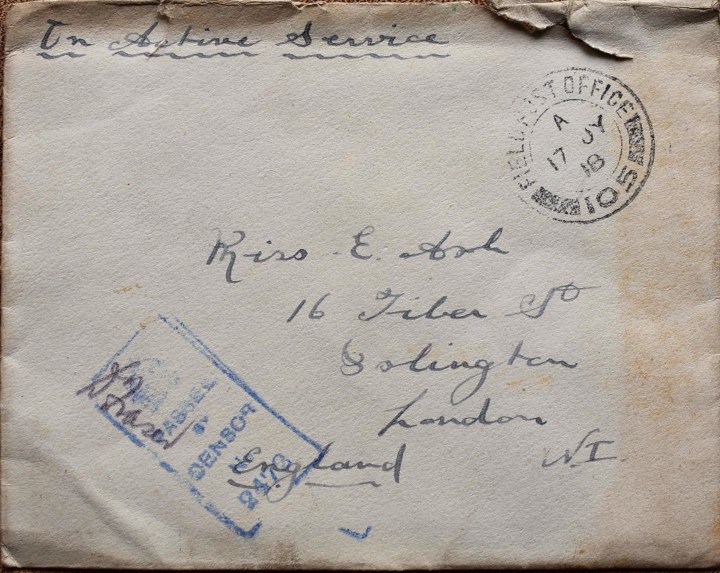 On Active Service
FIELD POST OFFICE
A
17 JY 18
501
Miss E. Ash
16 Tiber St
Islington
London
England N.1.
PASSED
BY
CENSOR
No
2470